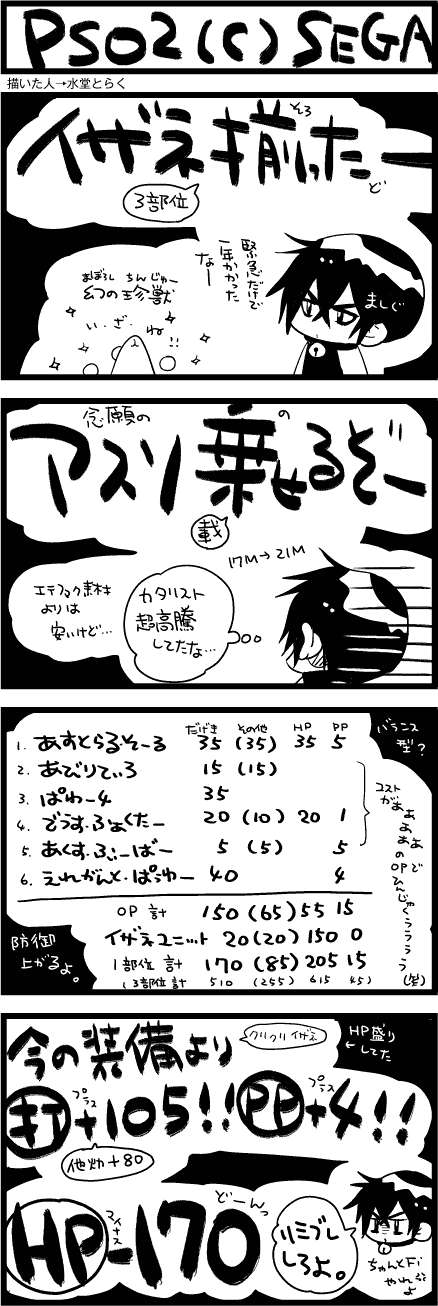 PSO2(C)SEGA
描いた人→水堂とらく
イザネ揃ったー
そろ
ど
3部位
緊急だけで
一年かかった
なー
ましぐ
まぼろし ちんじゅー
幻の珍獣
い・ざ・ね!!
念願の
アスソ乗せるぞー
の
載
17M→21M
カタリスト
超高騰
してたな…
エテファク素材
よりは
安いけど…
だげき その他 HP PP
1. あすとらる・そーる 35 (35) 35 5
2. あびりてぃろ 15 (15)
3. ぱわー4 35
4. でうす・ふぁくたー 20 (10) 20 1
5. あくす・ふぃーばー 5 (5) 5
6. えれがんと・ぱぅわー 40 4
バランス
型?
コスト
がぁぁぁぁぁ
のOPで
ひんじゃくぅぅぅぅ
(笑)
OP 計 150 (65) 55 15
イザネユニット 20 (20) 150 0
1部位 計 170 (85) 205 15
(3部位計 510 (255) 615 45)
防御
上がるよ。
今の装備より
クリクリイザネ
HP盛り
←してた
打+105!! PP+4!!
プラス
プラス
他効+80
HP-170
マイナス
どーんっ
リミブレ
しろよ。
ちゃんとFi
やれ
よ